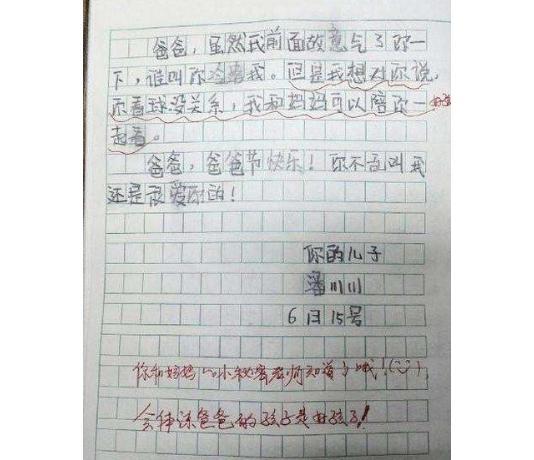 爸爸,虽然我前面故意气了你一
下,谁叫你冷落我。但是我想对你说,
不看球没关系,我和妈妈可以陪你一
起看。
爸爸,爸爸节快乐!你不乱叫我
还是最爱你的!
你的儿子
潘川川
6月15号
你和妈妈“小秘密老师知道了哦!
会体谅爸爸的孩子是好孩子!